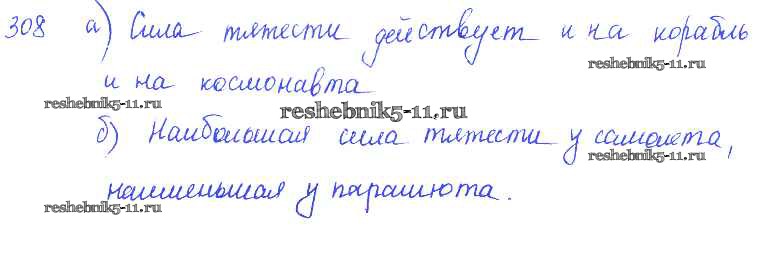 308 а) Сила тяжести действует и на корабль
reshebnik5-11.ru
и на космонавта
reshebnik5-11.ru
reshebnik5-11.ru
б) Наибольшая сила тяжести у самолета,
reshebnik5-11.ru
наименьшая у парашюта.
reshebnik5-11.ru